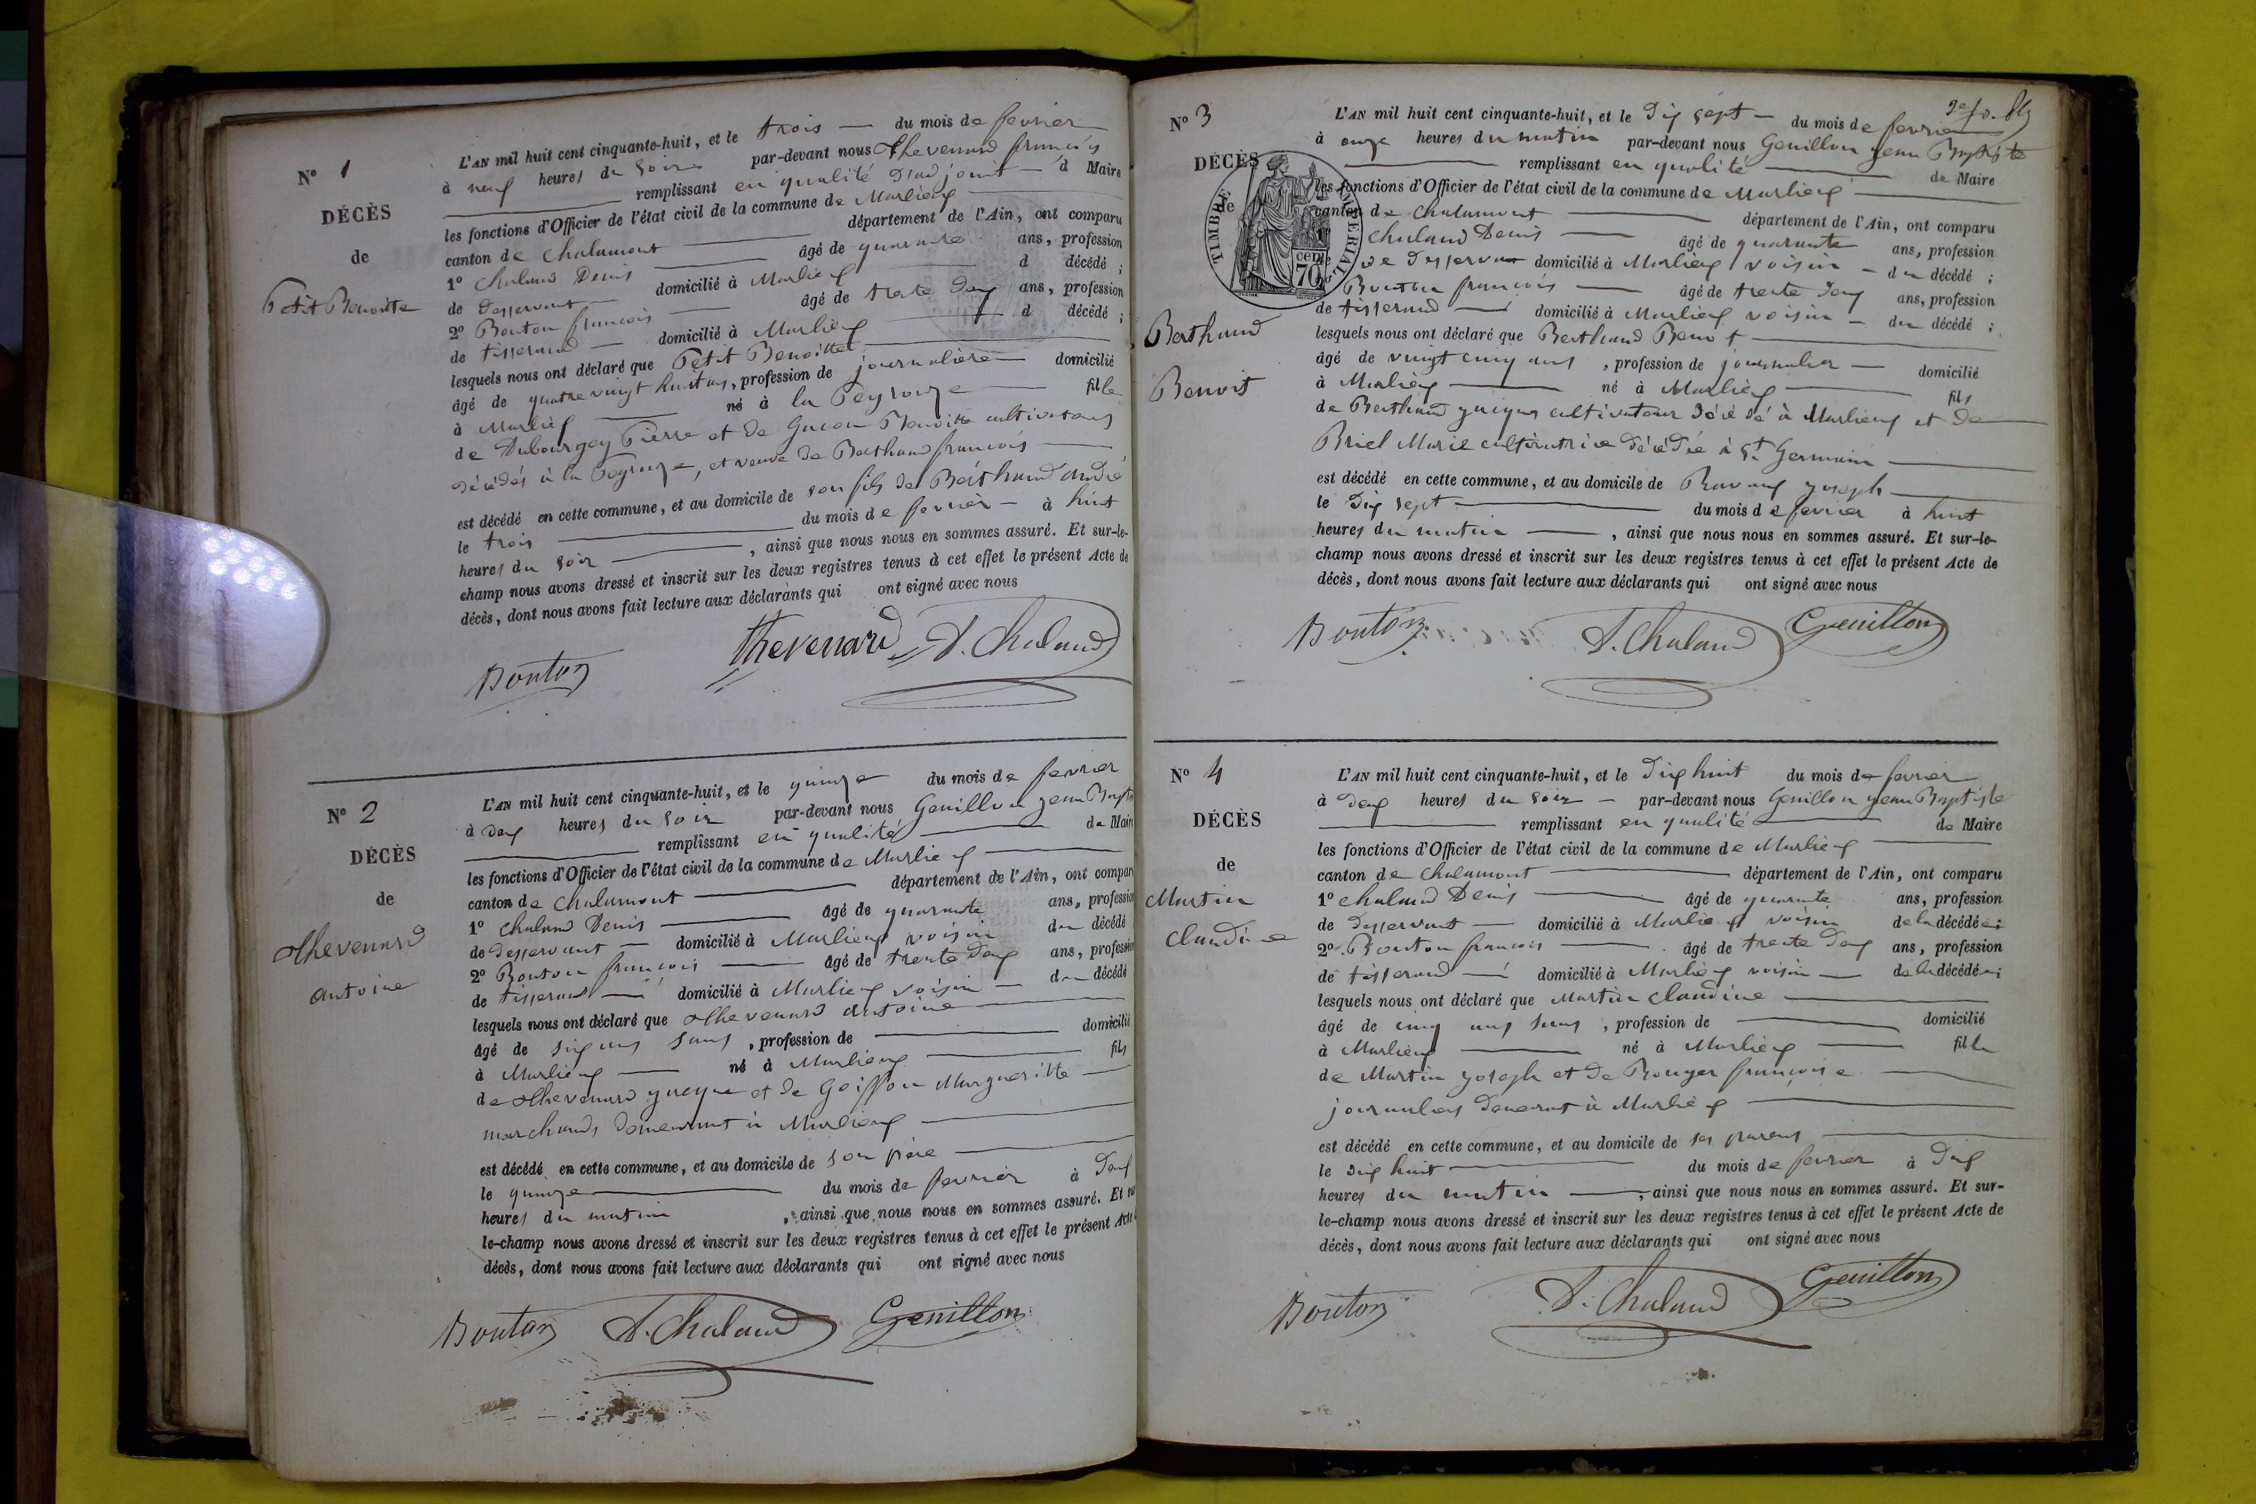 N° 1
DÉCÈS
de
Petit Benoitte
L'AN mil huit cent cinquante-huit, et le trois du mois de fevrier
à neuf heures du soir par-devant nous thevenard françois
remplissant en qualité d'adjoint d Maire
les fonctions d'Officier de l'état civil de la commune de Marlieux
canton de chalamont département de l'Ain, ont comparu
1° chaland Denis âgé de quarante ans, profession
de desservant domicilié à Marlieux d décédé ;
2° Bouton françois âgé de trente deux ans, profession
de tisserand domicilié à Marlieux d décédé ;
lesquels nous ont déclaré que Petit Benoitte
âgé de quatre vingt huit ans, profession de journalière domicilié
à Marlieux né à la Peyrouze fille
de Dubourgey Pierre et de Benoitte cultivateurs
décédés à la Peyrouze, et veuve de Berthaud françois
est décédé en cette commune, et au domicile de son fils de Berthaud André
le trois du mois de fevrier à huit
heures du soir , ainsi que nous nous en sommes assuré. Et sur-le-
champ nous avons dressé et inscrit sur les deux registres tenus à cet effet le présent Acte de
décès, dont nous avons fait lecture aux déclarants qui ont signé avec nous
Bouton thevenard D. Chaland
N° 2
DÉCÈS
de
thevenard
antoine
L'AN mil huit cent cinquante-huit, et le quinze du mois de fevrier
à deux heures du soir par-devant nous Genillon jean Baptis
remplissant en qualité de Maire
les fonctions d'Officier de l'état civil de la commune de Marlieux
canton de chalamont département de l'Ain, ont comparu
1° chaland Denis âgé de quarante ans, profession
de desservant domicilié à Marlieux voisin du décédé
2° Bouton françois âgé de trente deux ans, profession
de tisserand domicilié à Marlieux voisin du décédé
lesquels nous ont déclaré que thevenard antoine
âgé de six ans sans , profession de domicilié
à Marlieux né à Marlieux fils
de thevenard jacque et de Goiffon Margueritte
marchands demeurant à Marlieux
est décédé en cette commune, et au domicile de son père
le quinze du mois de fevrier à deux
heures du matin , ainsi que nous nous en sommes assuré. Et sur
le-champ nous avons dressé et inscrit sur les deux registres tenus à cet effet le présent Acte
décès, dont nous avons fait lecture aux déclarants qui ont signé avec nous
Bouton D. Chaland Genillon
N° 3
DÉCÈS
de
Berthaud
Benoit
TIMBRE IMPÉRIAL
70 cen
L'AN mil huit cent cinquante-huit, et le dix sept du mois de fevrier
à onze heures du matin par-devant nous Genillon jean Baptiste
remplissant en qualité de Maire
les fonctions d'Officier de l'état civil de la commune de Marlieux
canton de chalamont département de l'Ain, ont comparu
chaland Denis âgé de quarante ans, profession
de desservant domicilié à Marlieux voisin du décédé ;
Bouton françois âgé de trente deux ans, profession
de tisserand domicilié à Marlieux voisin du décédé ;
lesquels nous ont déclaré que Berthaud Benoit
âgé de vingt cinq ans , profession de journalier domicilié
à Marlieux né à Marlieux fils
de Berthaud jacques cultivateur décédé à Marlieux et de
Briel Marie cultivatrice décédée à St Germain
est décédé en cette commune, et au domicile de joseph
le dix sept du mois de fevrier à huit
heures du matin , ainsi que nous nous en sommes assuré. Et sur-le-
champ nous avons dressé et inscrit sur les deux registres tenus à cet effet le présent Acte de
décès, dont nous avons fait lecture aux déclarants qui ont signé avec nous
Bouton D. Chaland Genillon
N° 4
DÉCÈS
de
Martin
claudine
L'AN mil huit cent cinquante-huit, et le dix huit du mois de fevrier
à deux heures du soir par-devant nous Genillon jean Baptiste
remplissant en qualité de Maire
les fonctions d'Officier de l'état civil de la commune de Marlieux
canton de chalamont département de l'Ain, ont comparu
1° chaland Denis âgé de quarante ans, profession
de desservant domicilié à Marlieux voisin de la décédée ;
2° Bouton françois âgé de trente deux ans, profession
de tisserand domicilié à Marlieux voisin de la décédée ;
lesquels nous ont déclaré que Martin claudine
âgé de cinq ans sans , profession de domicilié
à Marlieux né à Marlieux fille
de Martin joseph et de Rouyer françoise
journaliers demeurant à Marlieux
est décédé en cette commune, et au domicile de ses parents
le dix huit du mois de fevrier à dix
heures du matin , ainsi que nous nous en sommes assuré. Et sur-
le-champ nous avons dressé et inscrit sur les deux registres tenus à cet effet le présent Acte de
décès, dont nous avons fait lecture aux déclarants qui ont signé avec nous
Bouton D. Chaland Genillon